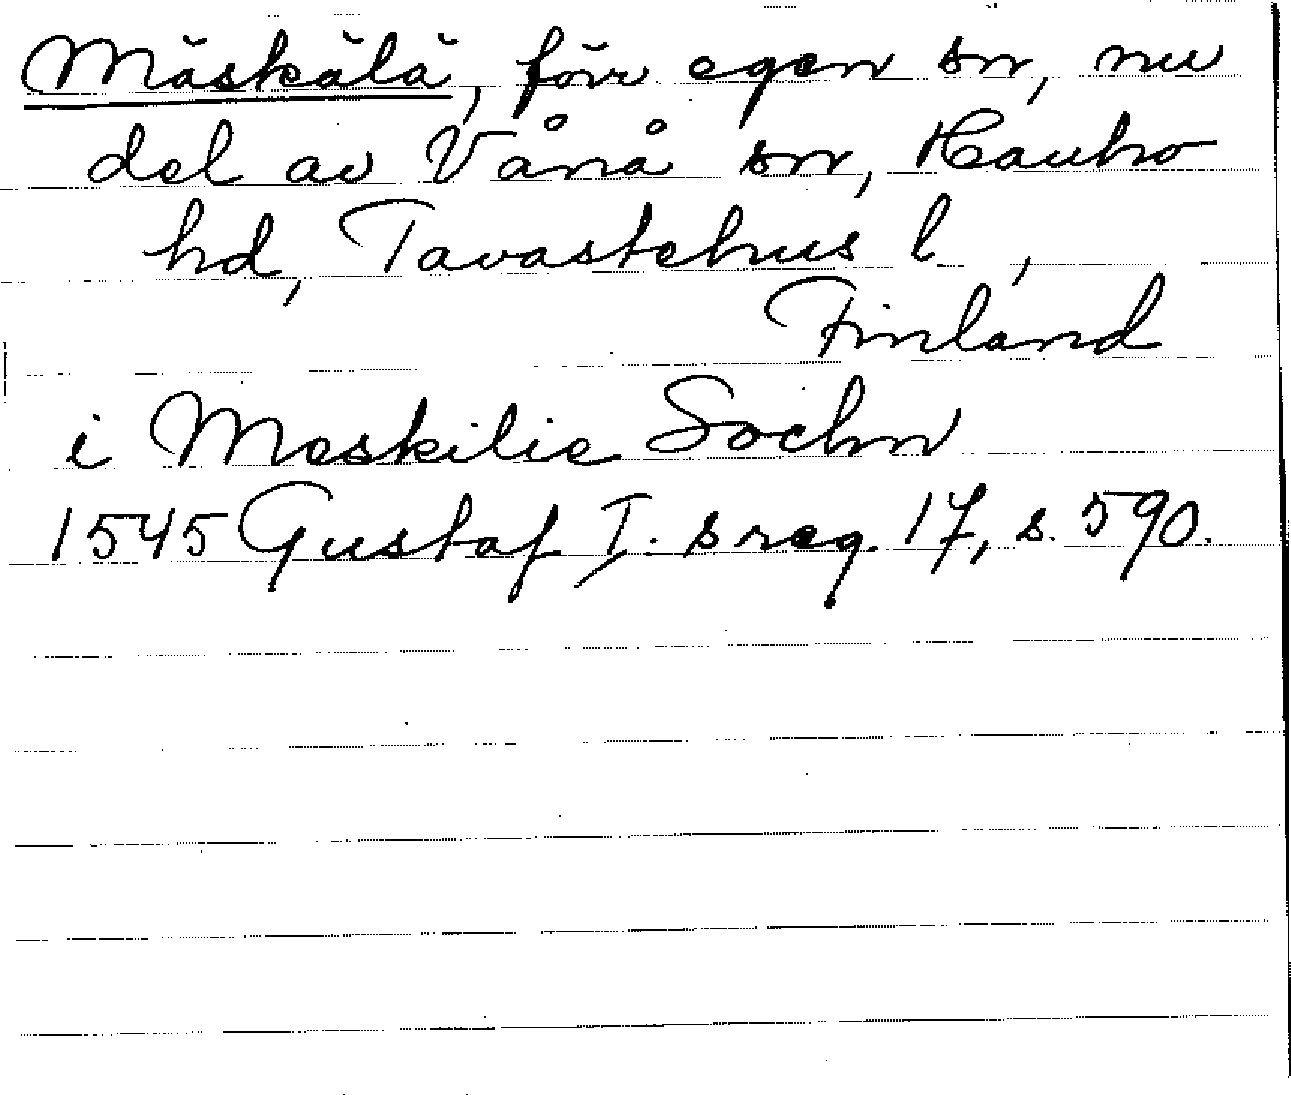 Mäskälä, förr egen sn, nu
del av Vånå sn, Hauho
hd, Tavastehus l,
Finland
i Meskilie Sochn
1545 Gustaf I.s reg. 17, s. 590.